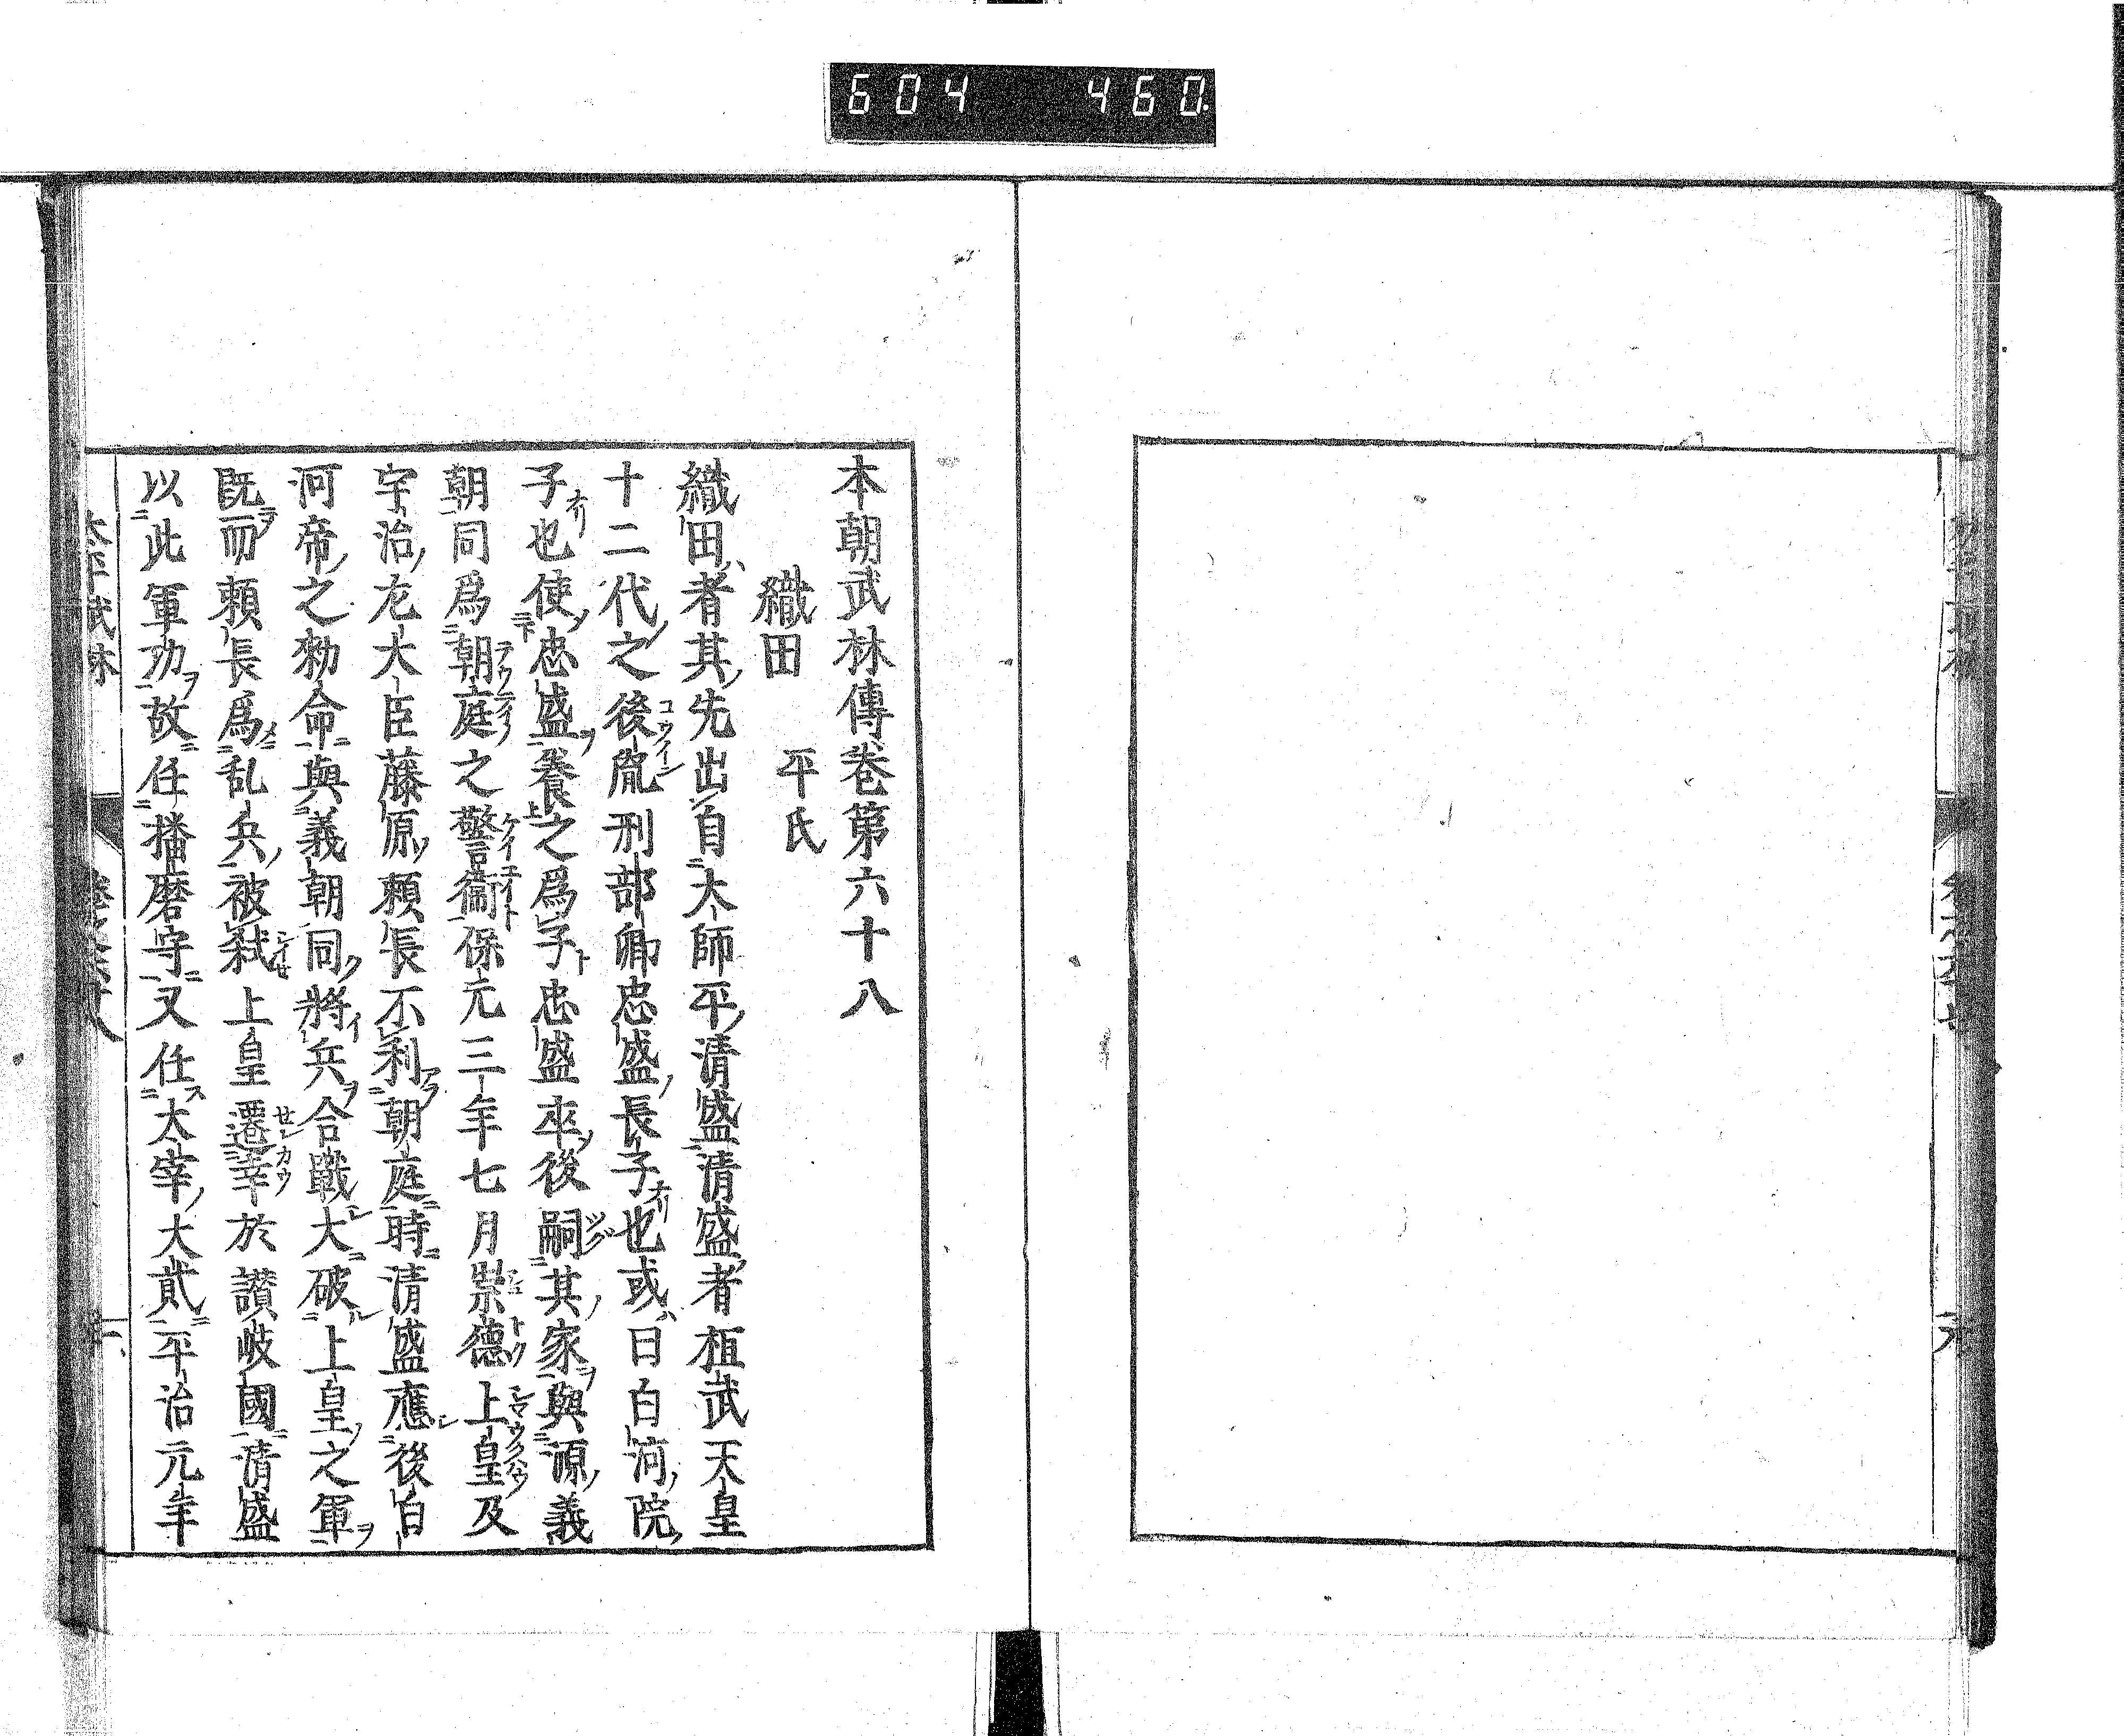 604 460.
本朝武林傳卷第六十八
織田 平氏
織田者其先出自大師平清盛清盛者桓武天皇
十二代之後胤刑部卿忠盛長子也或曰白河院
子也使忠盛養之爲子忠盛卒後嗣其家與源義
朝同爲朝庭之警衞保元三年七月崇德上皇及
宇治左大臣藤原頼長不利朝庭時清盛應後白
河帝之勅命與義朝同將兵合戰大破上皇之軍
既而頼長爲乱兵被弑上皇遷幸於讃岐國清盛
以此軍功故任播磨守又任大宰大貳平治元年